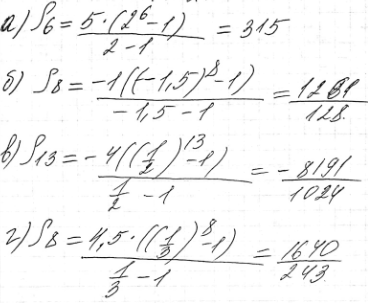 а) S₆ = 5·(2⁶-1) / 2-1 = 315
б) S₈ = -1((-1,5)⁸-1) / -1,5-1 = 1261 / 128.
в) S₁₃ = -4((1/2)¹³-1) / 1/2 -1 = - 8191 / 1024
г) S₈ = 4,5·((1/3)⁸-1) / 1/3 -1 = 1640 / 243.